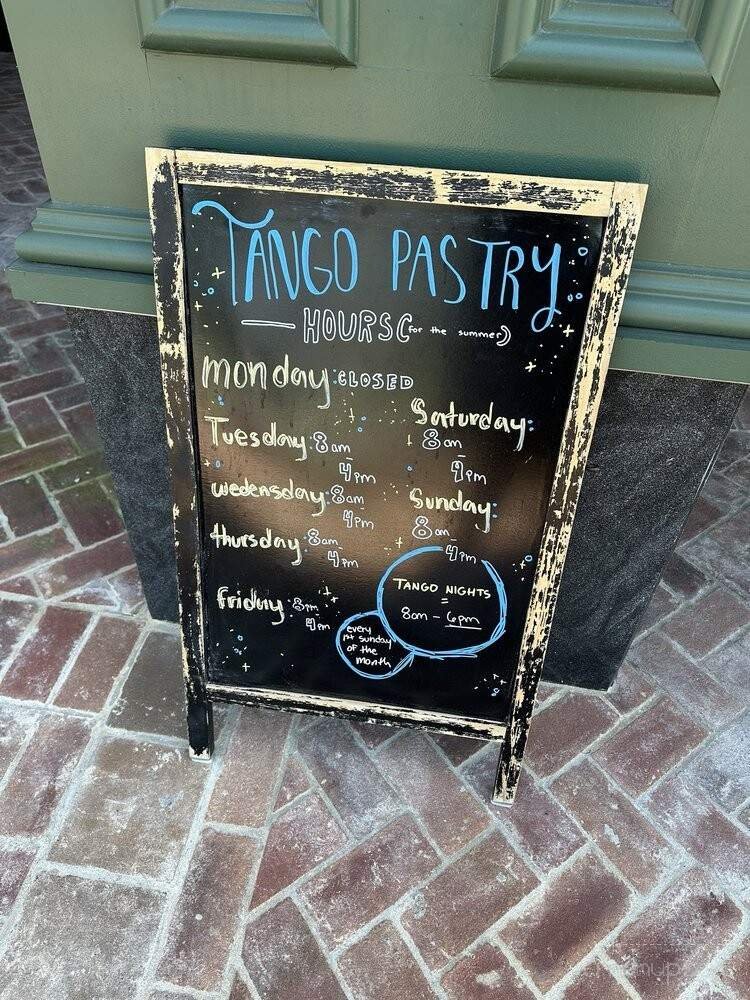 TANGO PASTRY
HOURS (for the summer)
monday: CLOSED
Tuesday: 8am - 4pm
wedensday: 8am - 4pm
thursday: 8am - 4pm
friday: 8pm - 4pm
Saturday: 8am - 4pm
Sunday: 8am - 4pm
TANGO NIGHTS
=
8am - 6pm
every
1st sunday
of the
month